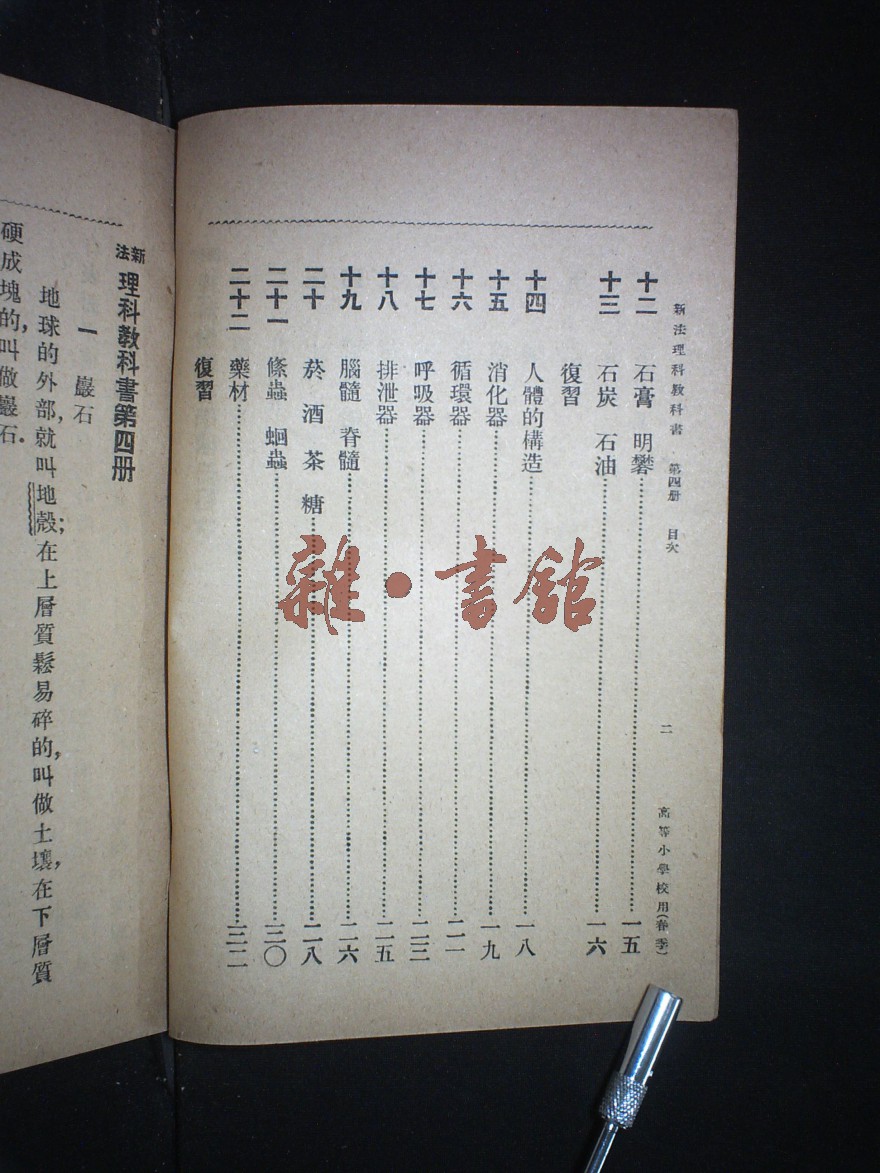 新法理科教科書 第四册 目次 二 高等小學校用(春季)
十二 石膏 明礬 一五
十三 石炭 石油 一六
復習
十四 人體的構造 一八
十五 消化器 一九
十六 循環器 二一
十七 呼吸器 二三
十八 排泄器 二五
十九 腦髓 脊髓 二六
二十 菸 酒 茶 糖 二八
二十一 絛蟲 蛔蟲 三〇
二十二 藥材 三二
復習
雜·書館
新法理科教科書第四册
一 巖石
地球的外部,就叫地殼;在上層質鬆易碎的,叫做土壤,在下層質
硬成塊的,叫做巖石.